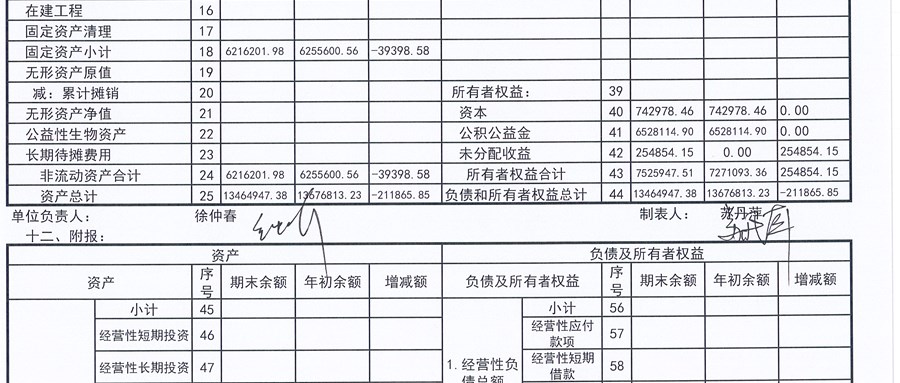 在建工程 16
固定资产清理 17
固定资产小计 18 6216201.98 6255600.56 -39398.58
无形资产原值 19
减：累计摊销 20 所有者权益： 39
无形资产净值 21 资本 40 742978.46 742978.46 0.00
公益性生物资产 22 公积公益金 41 6528114.90 6528114.90 0.00
长期待摊费用 23 未分配收益 42 254854.15 0.00 254854.15
非流动资产合计 24 6216201.98 6255600.56 -39398.58 所有者权益合计 43 7525947.51 7271093.36 254854.15
资产总计 25 13464947.38 13676813.23 -211865.85 负债和所有者权益总计 44 13464947.38 13676813.23 -211865.85
单位负责人： 徐仲春 制表人： 丹萍
十二、附报：
资产 负债及所有者权益
资产 序号 期末余额 年初余额 增减额 负债及所有者权益 序号 期末余额 年初余额 增减额
小计 45 小计 56
经营性短期投资 46 经营性应付款项 57
经营性长期投资 47 1.经营性负债总额 经营性短期借款 58